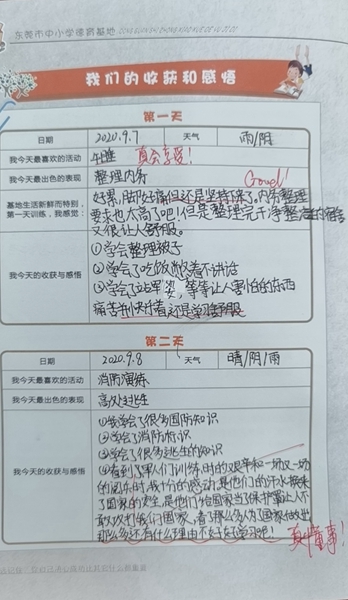 东莞市中小学德育基地
我们的收获和感悟
第一天
日期 2020.9.7 天气 雨/阴
我今天最喜欢的活动 午睡 真会享受!
我今天最出色的表现 整理内务 Good!
基地生活新鲜而特别,
第一天训练,我感觉:
好累,脚好痛,但还是坚持下来了。内务整理
要求也太高了吧!但是整理完干净整洁的宿舍
又很让人舒服。
我今天的收获与感悟
①学会整理被子
②学会了吃饭
③学会了站军姿,等等让人害怕的东西
痛苦并快乐着
第二天
日期 2020.9.8 天气 晴/阴/雨
我今天最喜欢的活动 消防演练
我今天最出色的表现 高处逃生
我今天的收获与感悟
①我学会了很多国防知识
②学会了消防知识
③学会了很多逃生的知识
④看到了军人们训练时的艰辛和一场又一场
的阅兵时,我十分的感动,是他们的汗水换来
了国家的安全,是他们给国家当了保护罩让人不
敢攻打我们国家,看了那么多人为了国家付出
那么多还有什么理由不好好学习呢!
真懂事!